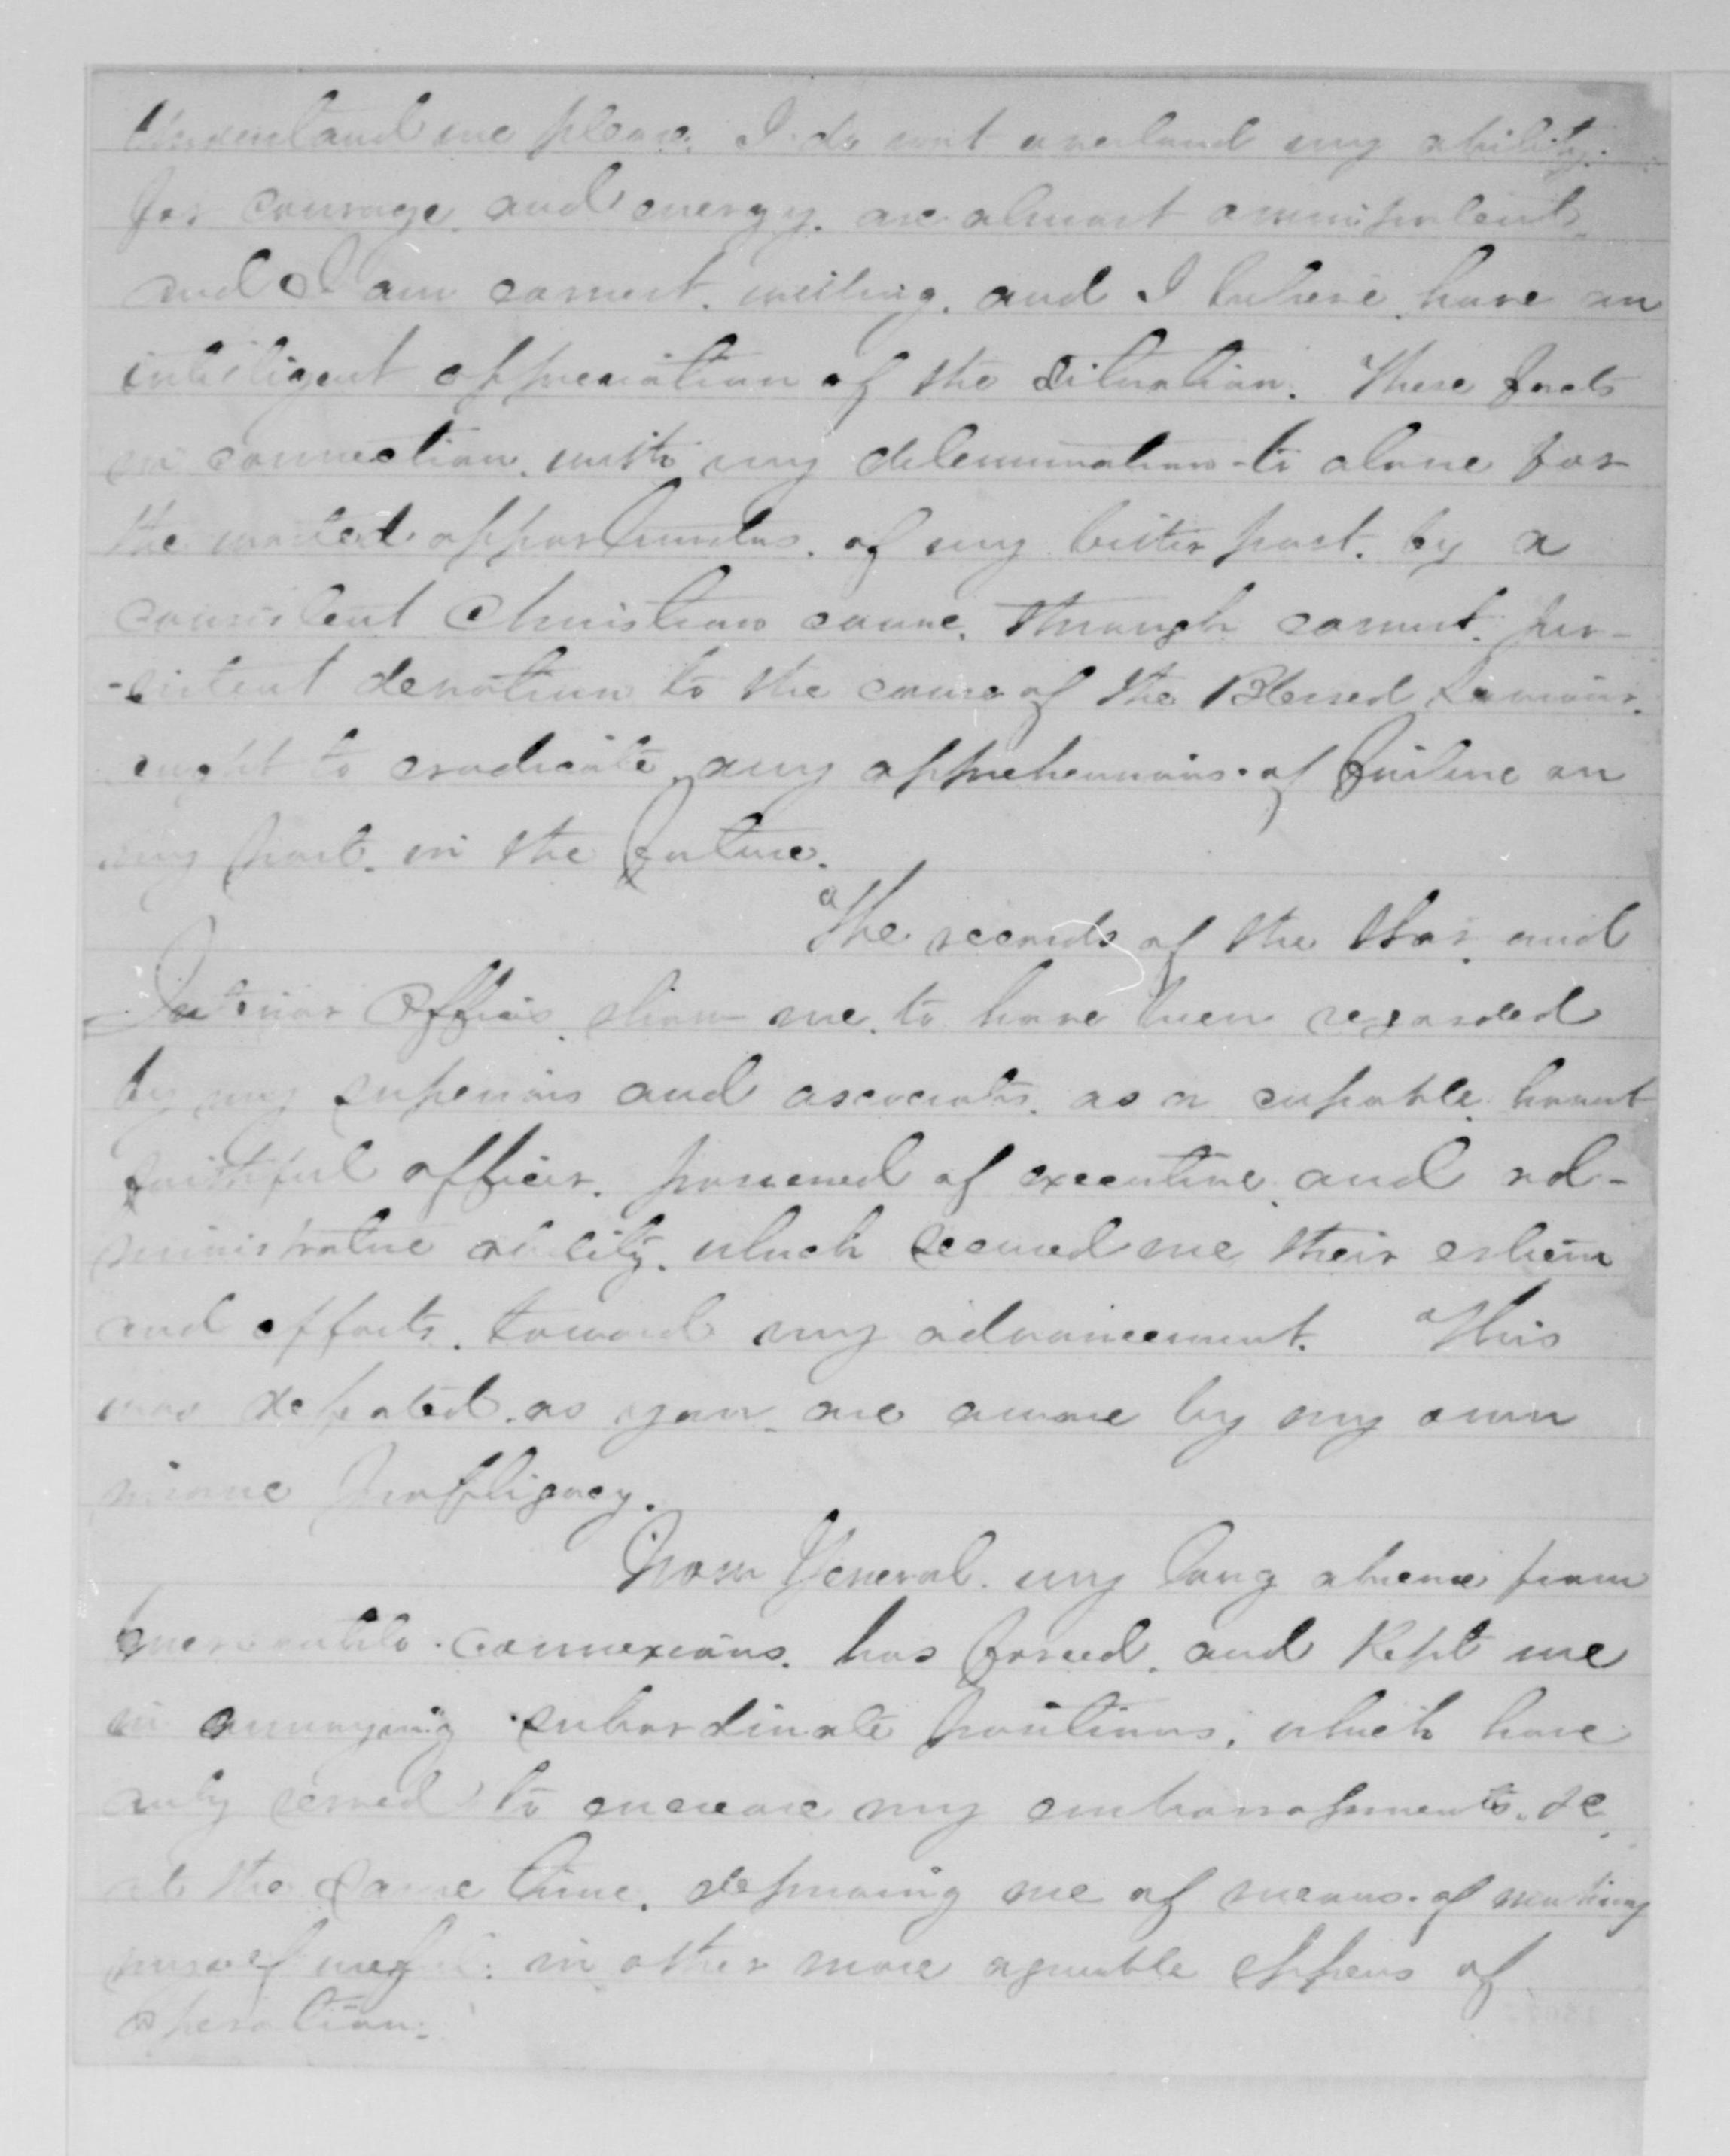 Understand me please. I do not overland my ability.
for courage and energy. are almost omnipotent
and I am earnest. willing. and I believe have an
intelligent appreciation of the situation. These facts
in connection with my determination to atone for
the wasted opportunities. of my bitter past. by a
consistent Christian course. through earnest. per-
-sistent devotion to the cause of the Blessed Saviour.
ought to eradicate any apprehensions. of failure on
my part. in the future.
The records of the War. and
Interior Offices. show me. to have been regarded
by my superiors and associates. as a capable. honest
faithful officer. possessed of executive. and ad-
ministrative ability. which secured me their esteem
and efforts. toward my advancement. This
was defeated. as you are aware by my own
insane profligacy.
Now General. my long absence from
mercantile connexions. has forced. and kept me
in annoying subordinate positions. which have
only served to encrease my embarrassments. &
at the same time. depriving me of means. of making
myself useful: in other more agreeable spheres of
operation.